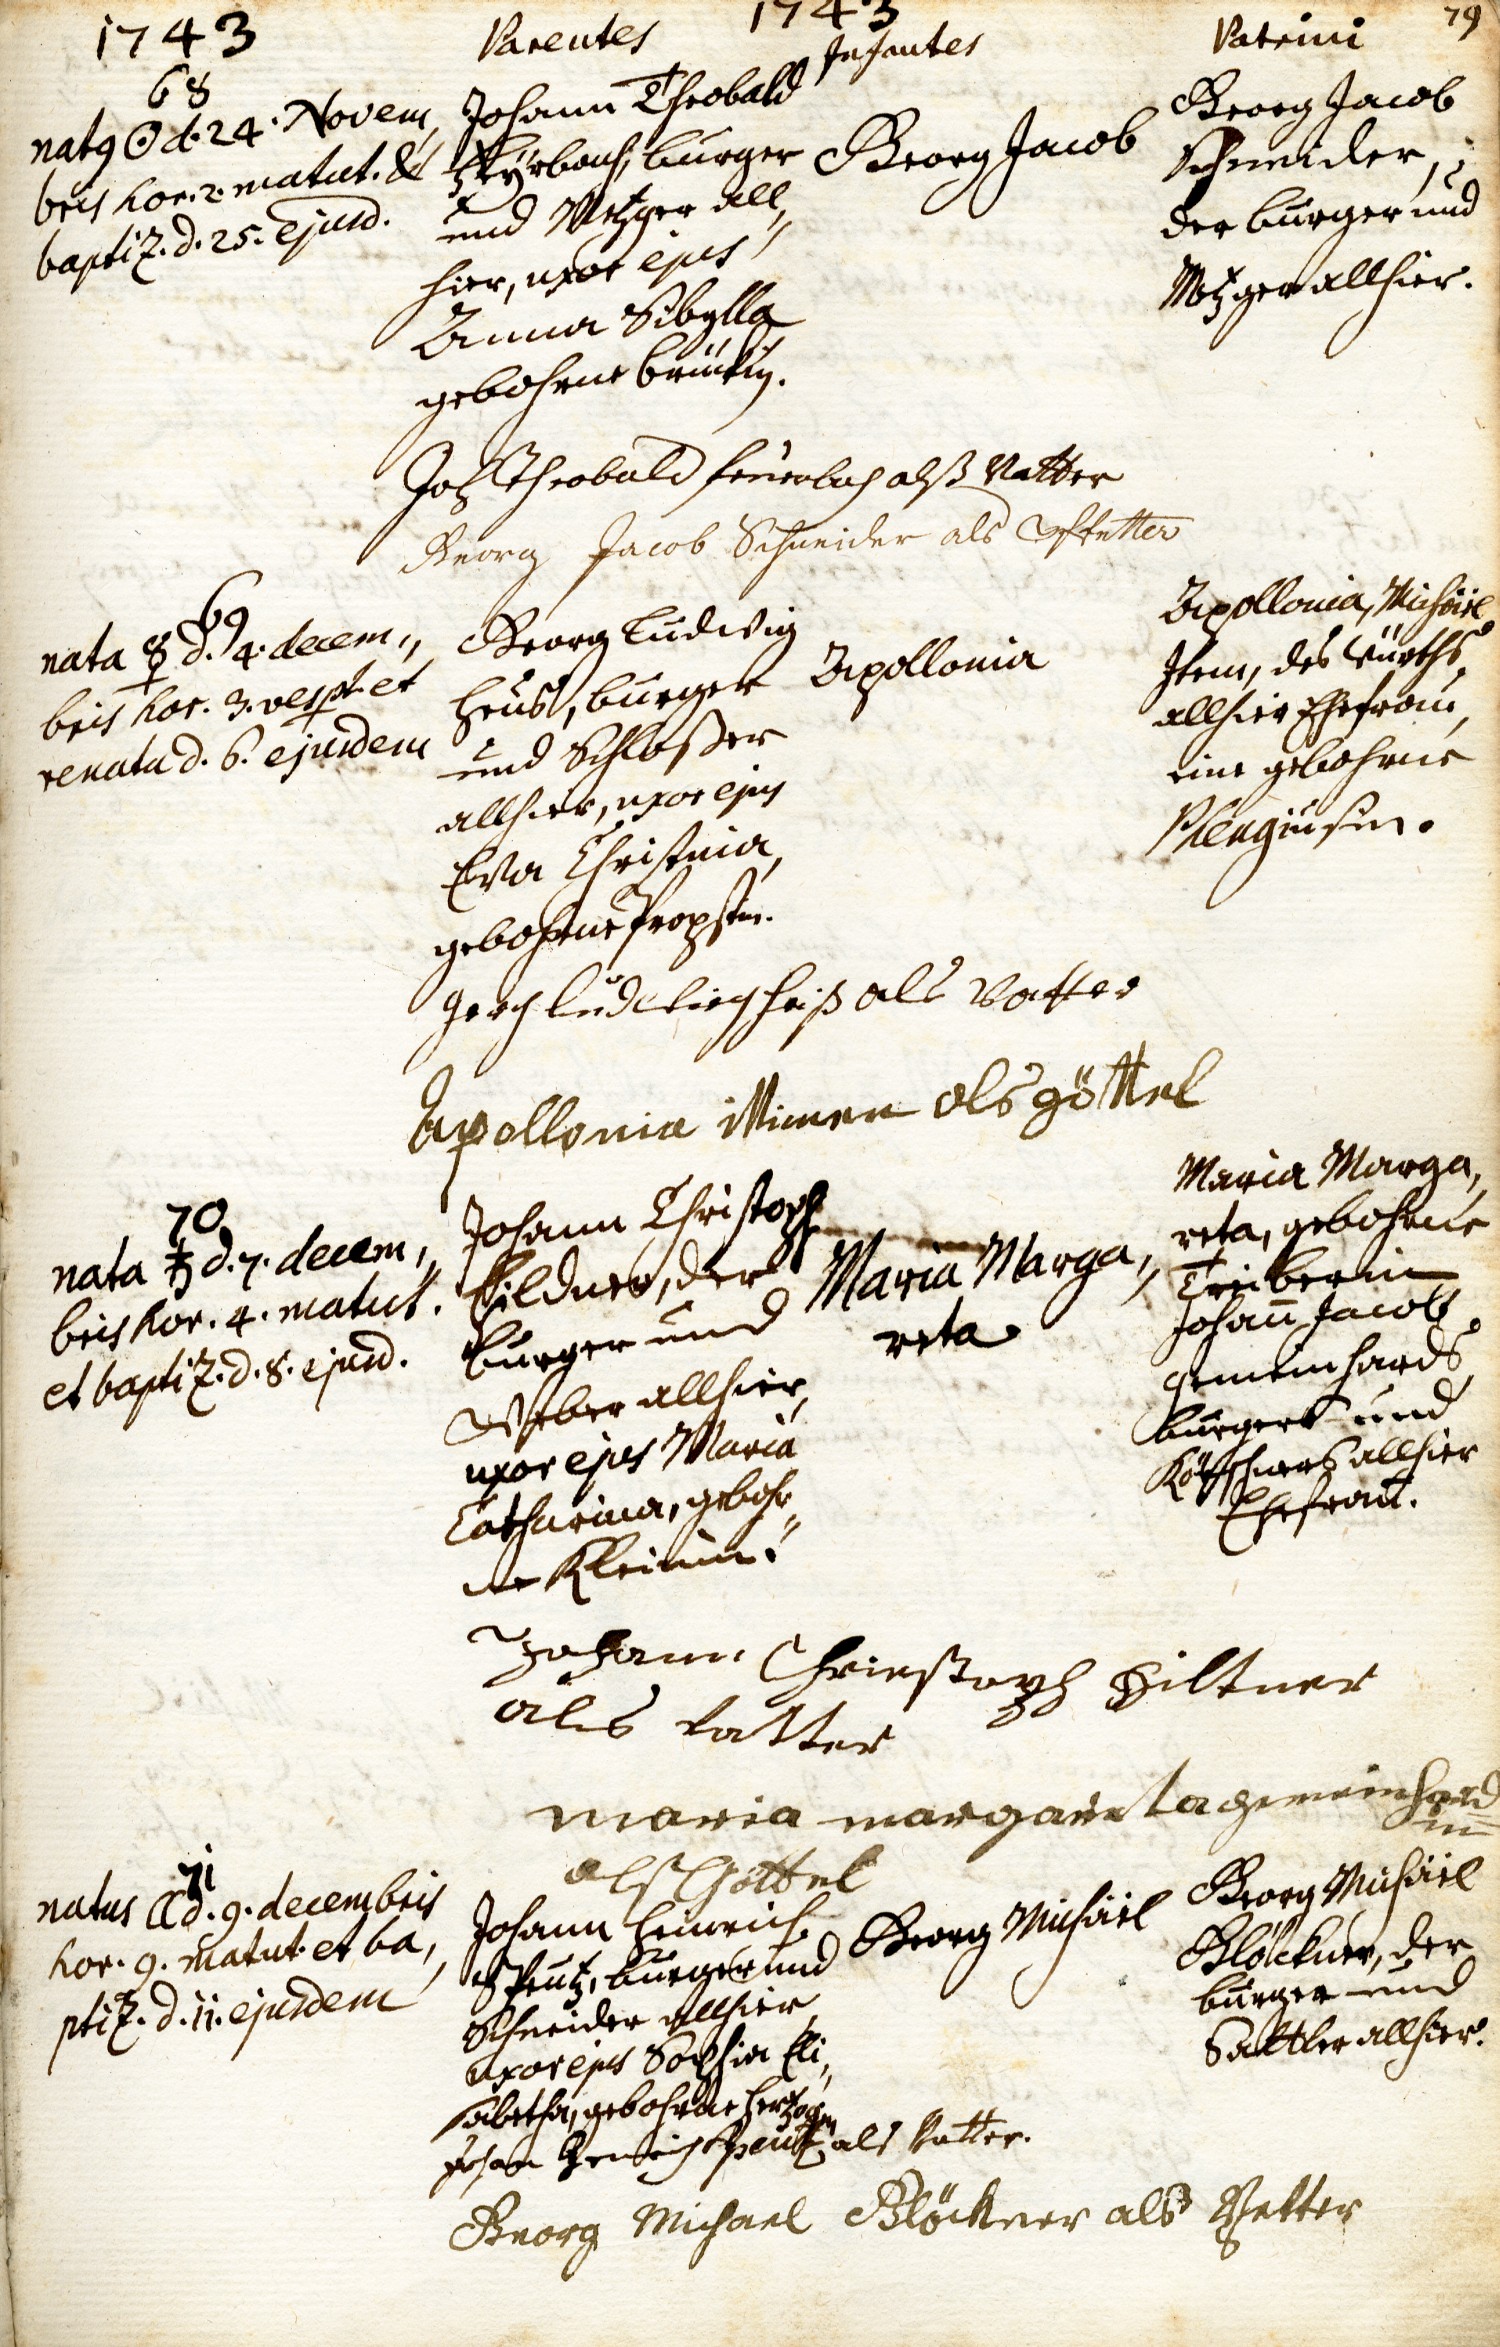 1743
Parentes
1743
Infantes
Patrini
79
68
nat9 ☉ d. 24. Novem„
bris hor. 2. matut. &
baptiz. d. 25. ejusd.
Johann Theobald
burger
und Metzger all„
hier, uxor ejus
Anna Sibylla
gebohrne
Georg Jacob
Georg Jacob
Schneider,
der burger und
Metzger allhier.
Joh Theobald feuerbach alß Vatter
Georg Jacob Schneider als Pfetter
69
nata ☿ d. 4. decem„
bris hor. 3. vesp. et
renata d. 6. ejusdem
Georg Ludwig
Heuß, burger
und Schloßer
allhier, uxor ejus
Eva Christina,
gebohrne Propstin.
Apollonia
Apollonia, Michäel
des Würths
allhier Ehefrau,
eine gebohrne
Gerg Ludwig heiß als Vatter
Apollonia als göttel
70
nata ♄ d. 7. decem„
bris hor. 4. matut.
et baptiz. d. 8. ejusd.
Johann Christoph
Hildner, der
burger und
Weber allhier,
uxor ejus Maria
Catharina, gebohr„
ne Kleinin.
Maria Marga„
reta
Maria Marga„
reta, gebohrne
Treiberin
Johann Jacob
Gemeinhards
burgers und
allhier
Ehefrau.
Johann Chriestoph Hiltner
als Vatter
maria margareta gemeinhard
in
als Göttel
71
natus ☾ d. 9. decembris
hor. 9. matut. et ba„
ptiz. d. 11. ejusdem
Johann Heinrich
Speutz, burger und
Schneider allhier,
uxor ejus Sophia Eli„
sabetha, gebohrne Hertzogin
Georg Michäel
Georg Michäel
Blöckner, der
burger und
Sattler allhier.
Johan Henrich Speutz als Vatter.
Georg Michael Blöckner als Pfetter